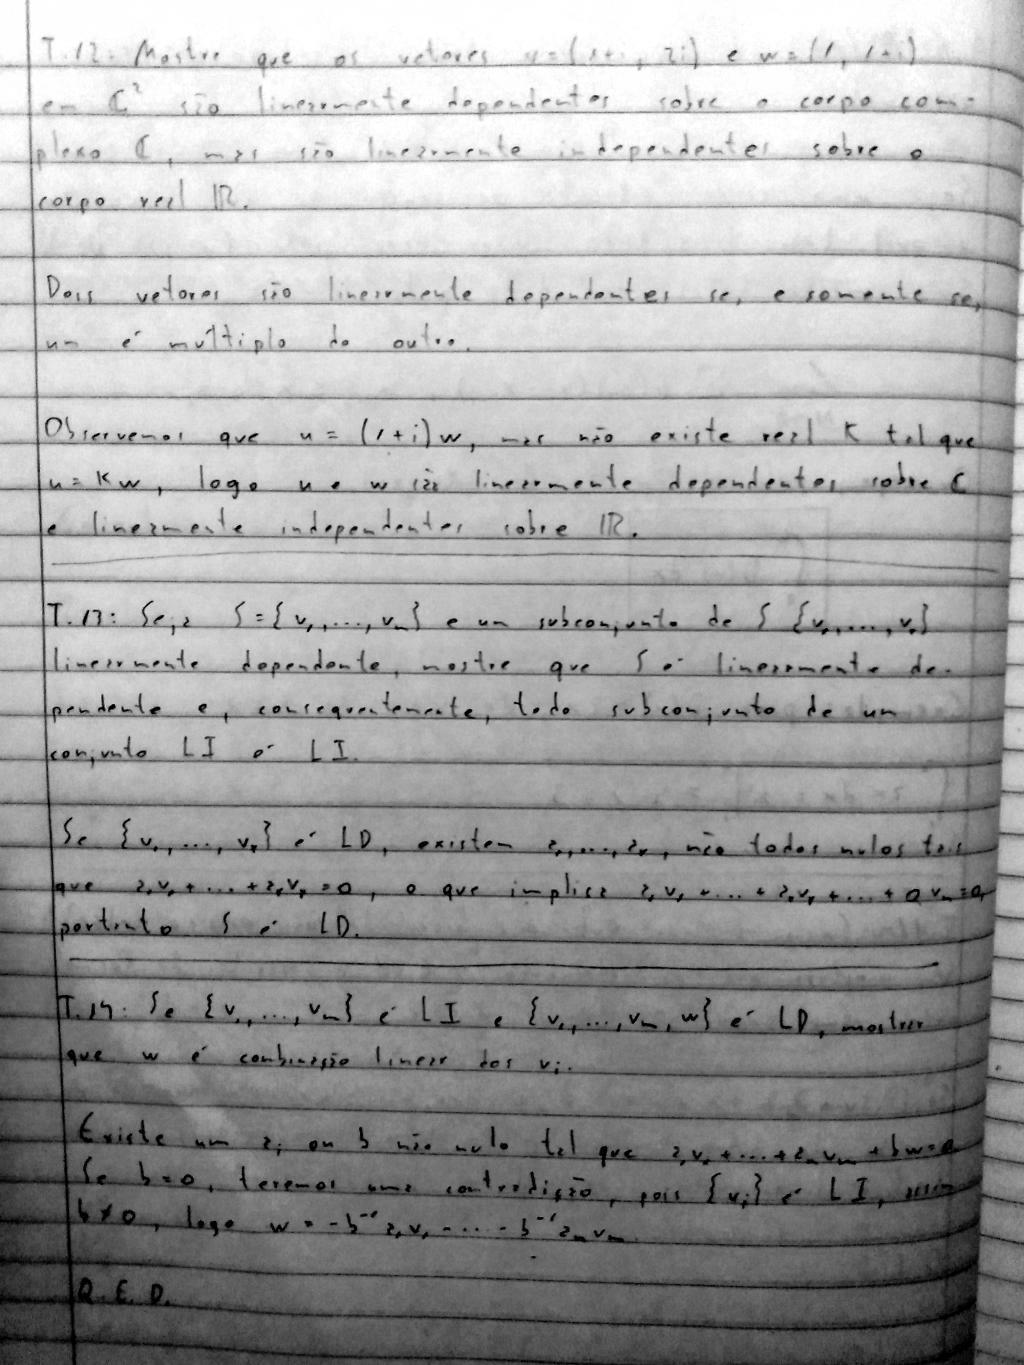 T.12: Mostre que os vetores u=(1+i, 2i) e w=(1, 1+i)
em ℂ² são linearmente dependentes sobre o corpo com-
plexo ℂ, mas são linearmente independentes sobre o
corpo real ℝ.
Dois vetores são linearmente dependentes se, e somente se,
um é múltiplo do outro.
Observemos que u = (1+i)w, mas não existe real K tal que
u=Kw, logo u e w são linearmente dependentes sobre ℂ
e linearmente independentes sobre ℝ.
T.13: Seja S={v₁,...,vₘ} e um subconjunto de S {v₁,...,vᵣ}
linearmente dependente, mostre que S é linearmente de-
pendente e, consequentemente, todo subconjunto de um
conjunto LI é LI.
Se {v₁,...,vᵣ} é LD, existem a₁,...,aᵣ, não todos nulos tais
que a₁v₁+...+aᵣvᵣ=0, o que implica a₁v₁+...+aᵣvᵣ+...+0vₘ=0,
portanto S é LD.
T.14: Se {v₁,...,vₘ} é LI e {v₁,...,vₘ,w} é LD, mostrar
que w é combinação linear dos vᵢ.
Existe um aᵢ ou b não nulo tal que a₁v₁+...+aₘvₘ+bw=0
Se b=0, teremos uma contradição, pois {vᵢ} é LI, assim
b≠0, logo w=-b⁻¹a₁v₁-...-b⁻¹aₘvₘ.
Q.E.D.